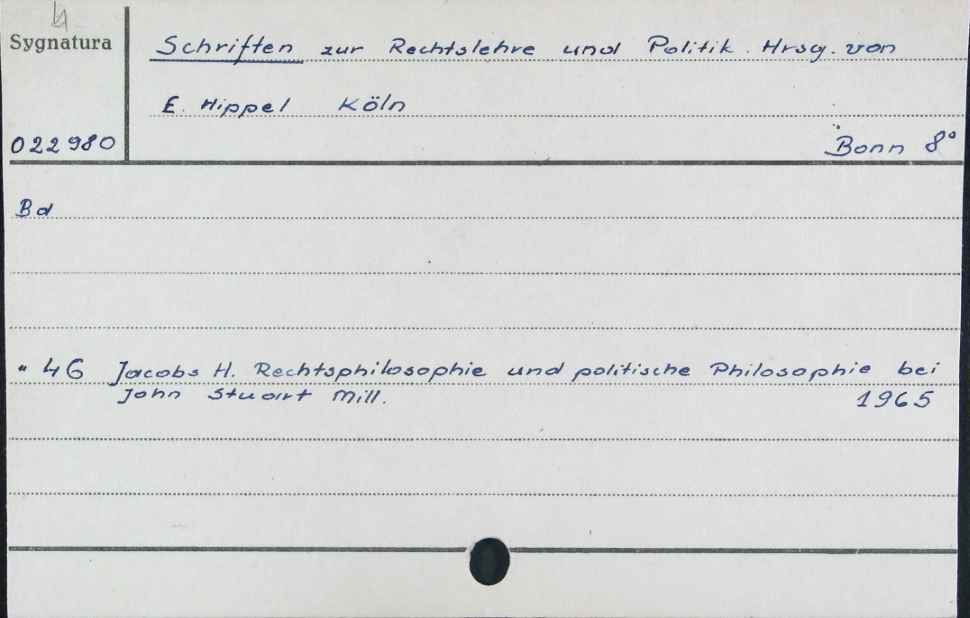 Sygnatura
Schriften zur Rechtslehre und Politik. Hrsg. von
E. Hippel Köln
022980
Bonn 8°
Bd
" 46 Jacobs H. Rechtsphilosophie und politische Philosophie bei
John Stuart Mill. 1965